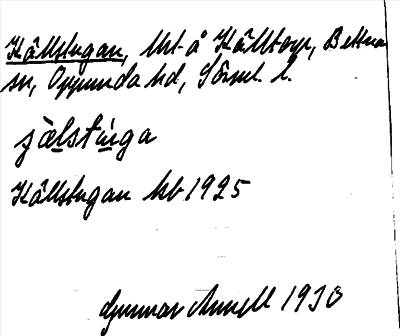 Källstugan, lht å Källtorp, Bettna
sn, Oppunda hd, Söml. l.
jälstu̇ga
Källstugan hb 1925
Gunnar Annell 1930